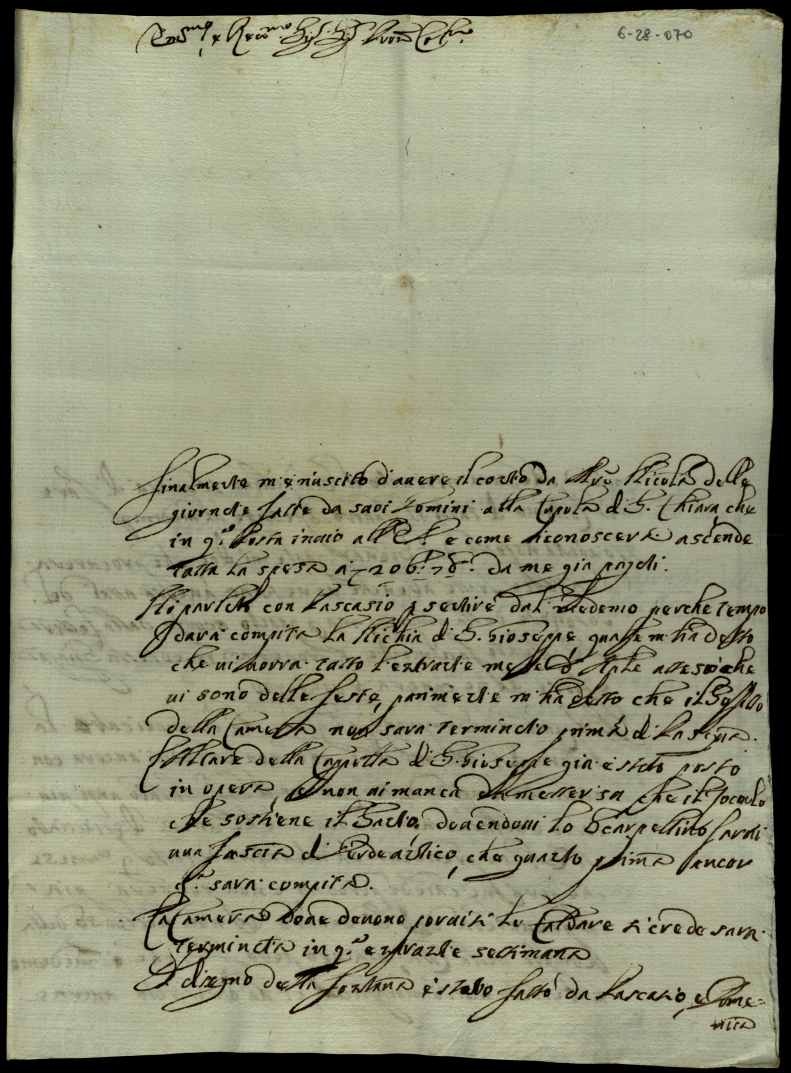 6-28-070
Em.mo e Re.mo Sig.r Sig.r Pron Col.mo
Finalmente m'è riuscito d'avere il conto da Mro Nicola delle
giornate fatte da suoi Uomini alla Cupola di S. Chiara che
in q.a Posta invio all' e come riconoscerà ascende
tutta la spesa a 206: 78: da me già pagati.
Ho parlato con Pascasio p sentire dal Medemo perche tempo
darà compita la Nichia di S. Gioseppe quale m'ha detto
che vi vorrà tutto l'entrante mese d' Aprile atteso che
vi sono delle feste, parimente m'ha detto che il
della Camera non sarà terminato prima di
L'Altare della Cappella di S. Gioseppe già è stato posto
in opera, e non vi manca da mettervi se che il Zocolo
che sostiene il Paliotto, dovendovi lo Scarpellino farvi
una fascia di Verde antico, che quanto prima ancor
q.a sarà compita.
La Camera dove devono porvisi le Caldare si crede sarà
terminata in q.a entrante settimana
Il disegno della fontana è stato fatto da Pascasio, e Dome=
nica